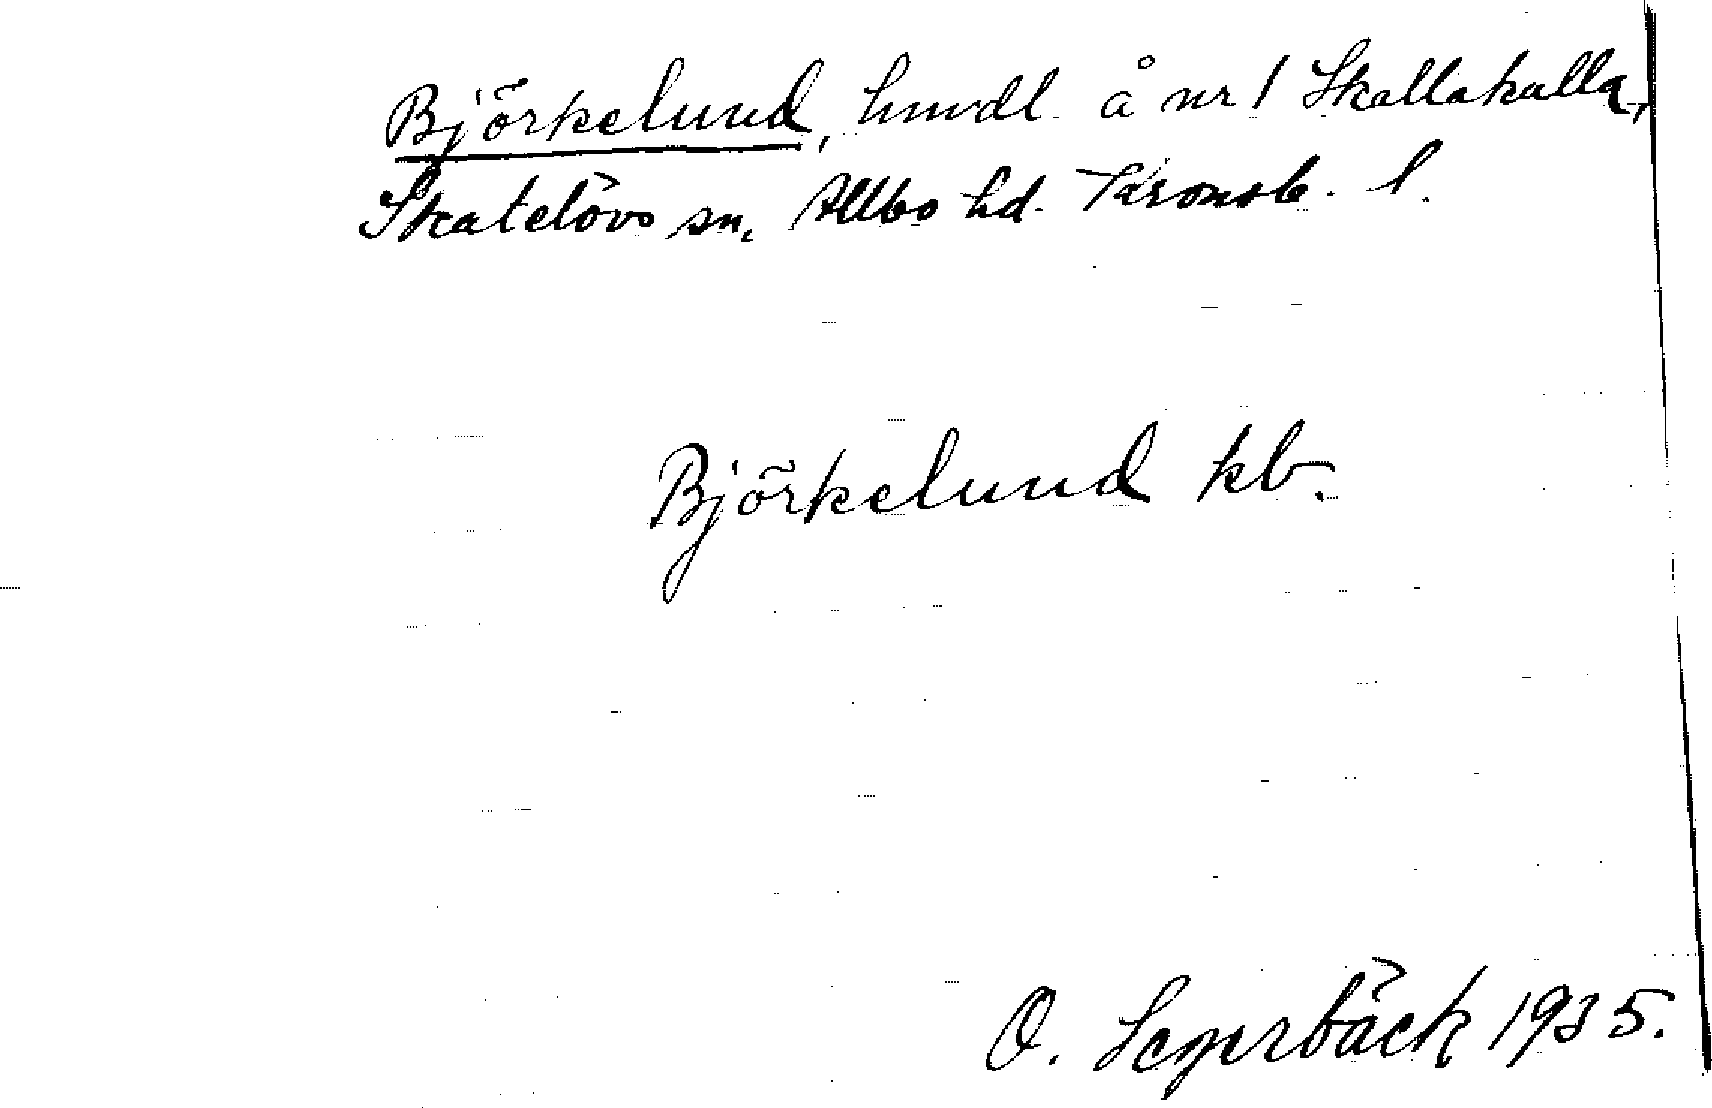 Björkelund, hmdl. å nr 1 Skallakulla,
Skatelövs sn, Allbo hd. Kronob. l.
Björkelund kb.
O. Segerbäck 1935.